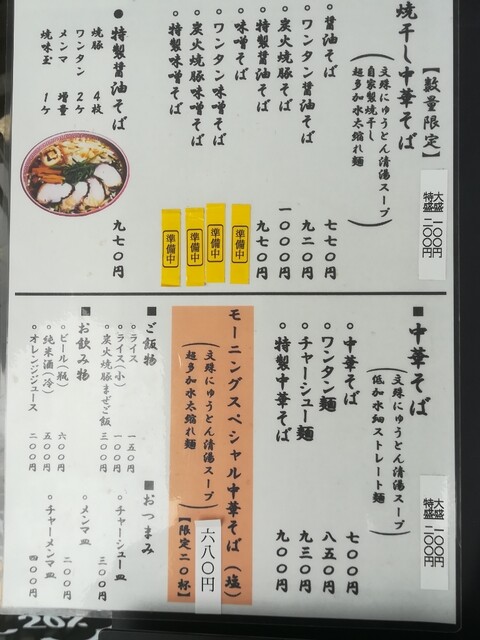 焼干し中華そば
【数量限定】
(文殊にゅうとん清湯スープ
自家製焼干し
超多加水太縮れ麺)
大盛 一〇〇円
特盛 二〇〇円
○醤油そば 七七〇円
○ワンタン醤油そば 九二〇円
○炭火焼豚そば 一〇〇〇円
○特製醤油そば 九七〇円
○味噌そば 準備中
○ワンタン味噌そば 準備中
○炭火焼豚味噌そば 準備中
○特製味噌そば 準備中
●特製醤油そば 九七〇円
焼豚 4枚
ワンタン 2ケ
メンマ 増量
焼味玉 1ケ
■中華そば
(文殊にゅうとん清湯スープ
低加水細ストレート麺)
大盛 一〇〇円
特盛 二〇〇円
○中華そば 七〇〇円
○ワンタン麺 八五〇円
○チャーシュー麺 九三〇円
○特製中華そば 九〇〇円
モーニングスペシャル中華そば(塩)
(文殊にゅうとん清湯スープ
超多加水太縮れ麺)
【限定二〇杯】
六八〇円
■ご飯物
○ライス 一五〇円
○ライス(小) 一〇〇円
○炭火焼豚まぜご飯 三〇〇円
■お飲み物
○ビール(瓶) 六〇〇円
○純米酒(冷) 五〇〇円
○オレンジジュース 二〇〇円
■おつまみ
○チャーシュー皿 三〇〇円
○メンマ皿 二〇〇円
○チャーメンマ皿 四〇〇円